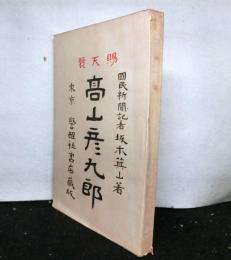 賜天覧
國民新聞記者坂本箕山著
高山彦九郎
東京 警醒社書店藏版